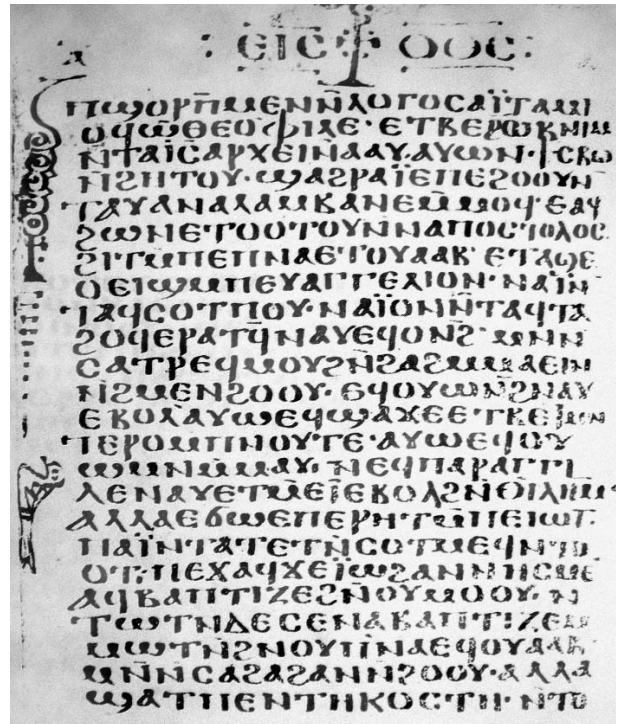 ⲁ : ⲉⲓⲥ ⲟⲑⲥ :
ⲡϣⲟⲣⲡ̄ⲙⲉⲛⲛ̄ⲗⲟⲅⲟⲥⲁⲓ̈ⲧⲁⲙⲓ
ⲟϥⲱ̄ⲑⲉⲟⲫⲓⲗⲉ·ⲉⲧⲃⲉϩⲱⲃⲛⲓⲙ
ⲛ̄ⲧⲁⲓ̈ⲥⲁⲣⲭⲉⲓⲛⲁⲁⲩ·ⲁⲩⲱⲛ·ϯⲥⲃⲱ
ⲛ̄ϩⲏⲧⲟⲩ·ϣⲁϩⲣⲁⲓ̈ⲉⲡⲉϩⲟⲟⲩⲛ
ⲧⲁⲩⲁⲛⲁⲗⲁⲙⲃⲁⲛⲉⲙ̄ⲙⲟϥ·ⲉⲁϥ
ϩⲱⲛⲉⲧⲟⲟⲧⲟⲩⲛⲛⲁⲡⲟⲥⲧⲟⲗⲟⲥ
ϩⲓⲧⲙ̄ⲡⲉⲡⲛⲁⲉⲧⲟⲩⲁⲁⲃ·ⲉⲧⲁϣⲉ
ⲟⲉⲓϣⲙ̄ⲡⲉⲩⲁⲅⲅⲉⲗⲓⲟⲛ·ⲛⲁⲓ̈ⲛ
ⲧⲁϥⲥⲟⲧⲡⲟⲩ·ⲛⲁⲓ̈ⲟⲛⲛ̄ⲧⲁϥⲧⲁ
ϩⲟϥⲉⲣⲁⲧϥ̄ⲛⲁⲩⲉϥⲟⲛϩ·ⲙⲛⲛ
ⲥⲁⲧⲣⲉϥⲙⲟⲩϩⲛ̄ϩⲁϩⲙ̄ⲙⲁⲉⲓⲛ
ⲛ̄ϩⲙⲉⲛϩⲟⲟⲩ·ⲉϥⲟⲩⲱⲛϩ̄ⲛⲁⲩ
ⲉⲃⲟⲗⲁⲩⲱⲉϥϣⲁϫⲉⲉⲧⲃⲉⲧⲙⲛ
ⲧⲉⲣⲟⲙⲡⲛⲟⲩⲧⲉ·ⲁⲩⲱⲉϥⲟⲩ
ⲱⲙⲛⲙ̄ⲙⲁⲩ·ⲛⲉϥⲡⲁⲣⲁⲅⲅⲓ
ⲗⲉⲛⲁⲩⲉⲧⲙ̄ⲉⲓ̈ⲉⲃⲟⲗϩⲛ̄ⲑⲓⲗⲏⲙ·
ⲁⲗⲗⲁⲉϭⲱⲉⲡⲉⲣⲏⲧⲙ̄ⲡⲉⲓⲱⲧ
ⲡⲁⲓ̈ⲛⲧⲁⲧⲉⲧⲛ̄ⲥⲟⲧⲙⲉϥⲛ̄ⲧⲟ
ⲟⲧ·ⲡⲉϫⲁϥϫⲉⲓ̈ⲱϩⲁⲛⲛⲏⲥⲙⲉ
ⲁϥⲃⲁⲡⲧⲓⲍⲉϩⲛ̄ⲟⲩⲙⲟⲟⲩ·ⲛ
ⲧⲱⲧⲛ̄ⲇⲉⲥⲉⲛⲁⲃⲁⲡⲧⲓⲍⲉⲙ
ⲙⲱⲧⲛ̄ϩⲛⲟⲩⲡⲛ̄ⲁⲉϥⲟⲩⲁⲁⲃ
ⲙⲛ̄ⲛⲥⲁϩⲁϩⲁⲛⲛϩⲟⲟⲩ·ⲁⲗⲗⲁ
ϣⲁⲧⲡⲉⲛⲧⲏⲕⲟⲥⲧⲏ·ⲛⲧⲟ